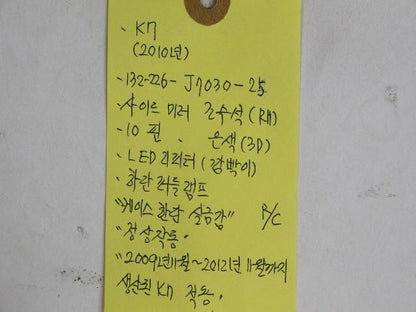 · K7
(2010년)
· 132-226- J7030-25
· 사이드 미러 조수석(RH)
· 10 핀 、 은색(3D)
· LED 리피터(깜빡이)
· 하단 퍼들램프
"케이스 환감 실금감" R/C
· 정상작동.
"2009년11월~2012년 11월까지
생산된 K7 적용.